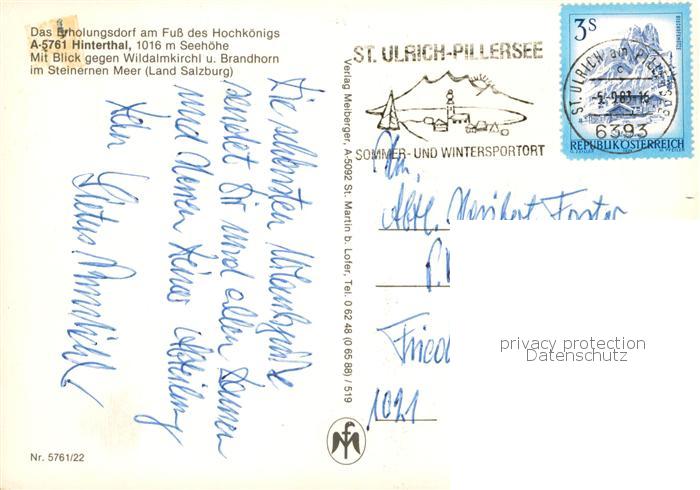 Das Erholungsdorf am Fuß des Hochkönigs
A-5761 Hinterthal, 1016 m Seehöhe
Mit Blick gegen Wildalmkirchl u. Brandhorn
im Steinernen Meer (Land Salzburg)
Die schönsten Urlaubsgrüße
sendet Dir und allen Damen
und Herren Deiner Abteilung
Dein
Nr. 5761/22
Verlag Meiberger, A-5092 St. Martin b. Lofer, Tel. 0 62 48 (0 65 88) / 519
ST. ULRICH-PILLERSEE
SOMMER- UND WINTERSPORTORT
3 S
ST. ULRICH am PILLERSEE
6393
REPUBLIK ÖSTERREICH
Abtl. Heribert Forster
Fried
1021
privacy protection
Datenschutz